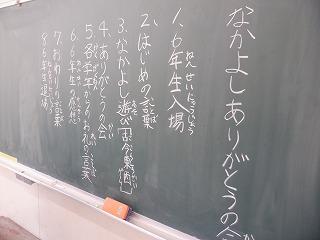 なかよしありがとうの会
1.6年生入場
ねん せい にゅうじょう
2.はじめの言葉
3.なかよし遊び
4.ありがとうの会
5.各学年からのお礼の言葉
6.6年生の感想
7.おわりの言葉
8.6年生退場